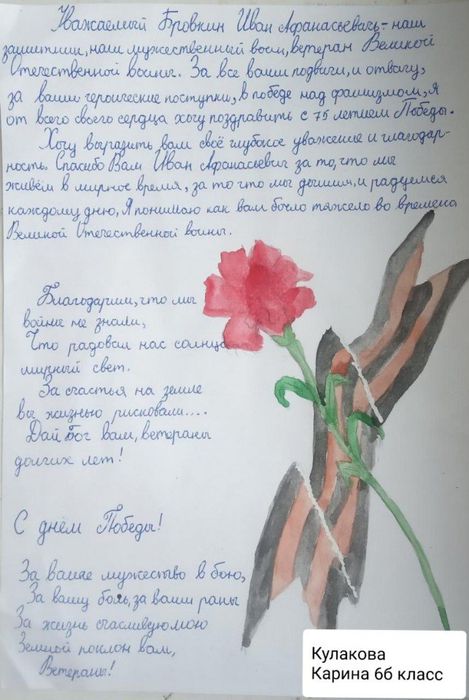 Уважаемый Бровкин Иван Афанасьевич - наш
защитник, наш мужественный воин, ветеран Великой
Отечественной войны. За все ваши подвиги, и отвагу,
за ваши героические поступки, в победе над фашизмом, я
от всего своего сердца хочу поздравить с 75 летием Победы.
Хочу выразить вам своё глубокое уважение и благодар-
ность. Спасибо Вам Иван Афанасьевич за то, что мы
живём в мирное время, за то что мы дышим, и радуемся
каждому дню, Я понимаю как вам было тяжело во времена
Великой Отечественной войны.
Благодарим, что мы
войны не знали,
Что радовал нас солнца
мирный свет.
За счастья на земле
вы жизнью рисковали....
Дай Бог вам, ветераны
долгих лет!
С днём Победы!
За ваше мужество в бою,
За вашу боль, за ваши раны
За жизнь счасливую мою
Земной поклон вам,
Ветераны!
Кулакова
Карина 6б класс